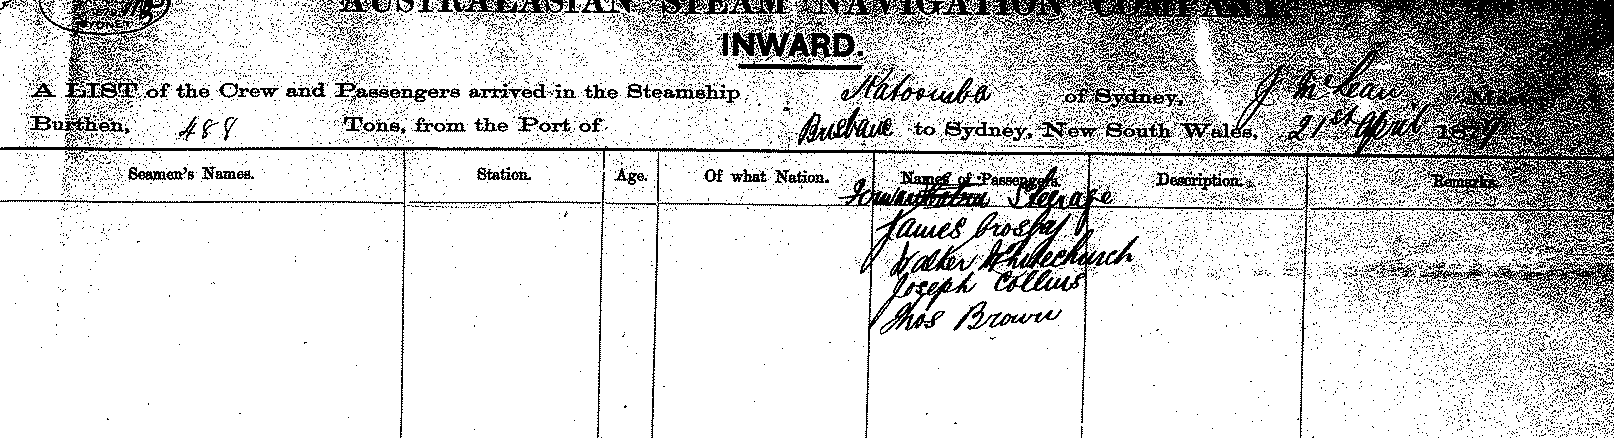 SYDNEY
AUSTRALASIAN STEAM NAVIGATION COMPANY.
INWARD.
A LIST of the Crew and Passengers arrived in the Steamship Katoomba of Sydney, J McLean, Master
Burthen, 488 Tons, from the Port of Brisbane to Sydney, New South Wales, 21st April 1879
Seamen's Names. Station. Age. Of what Nation. Names of Passengers. Description. Remarks.
Steerage
James Crosby
Walter Whitechurch
Joseph Collins
Thos Brown